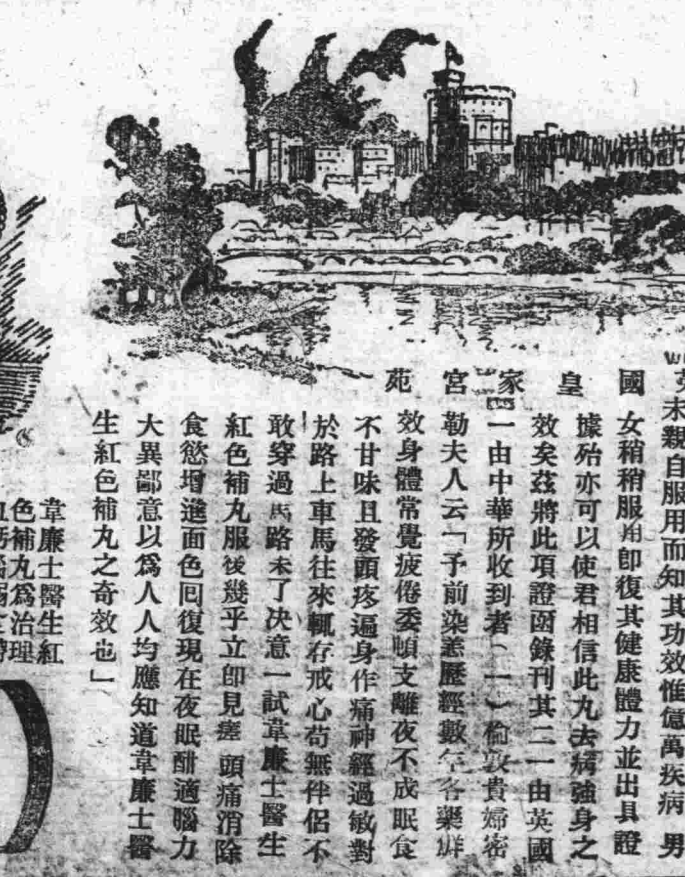 英國皇家宮苑
未親自服用而知其功效惟億萬疾病男
女稍稍服用卽復其健康體力並出具證
據殆亦可以使君相信此丸去病強身之
效矣茲將此項證函錄刊其二一由英國
一由中華所收到者（一）倫敦貴婦密
勒夫人云「予前染恙歷經數年各藥鮮
效身體常覺疲倦委頓支離夜不成眠食
不甘味且發頭疼遍身作痛神經過敏對
於路上車馬往來輒存戒心苟無伴侶不
敢穿過馬路末了决意一試韋廉士醫生
紅色補丸服後幾乎立卽見瘥頭痛消除
食慾增進面色回復現在夜眠酣適腦力
大異鄙意以爲人人均應知道韋廉士醫
生紅色補丸之奇效也」
韋廉士醫生紅
色補丸爲治理